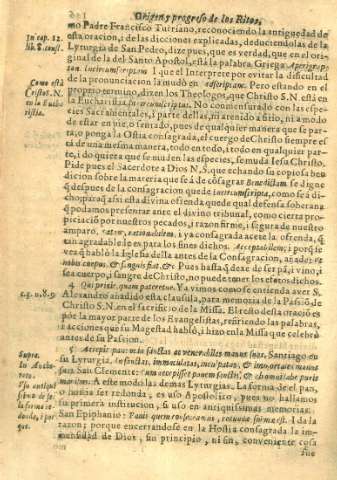 Origen, y progreso de los Ritos,
mo Padre Francisco Turriano, reconociendo la antiguedad de
esta oracion, i de las diciones explicadas, deduciendolas de la
In cap. 12.
lib. 8. const.
Lyturgia de San Pedro, dize pues, que es verdad, que en el ori-
ginal de la del Santo Apostol, està la palabra Griega Aperigrap-
ton. Incircumscriptam I que el Interprete por evitar la dificultad
de la pronunciacion la mudò en adscriptam. Pero estando en el
Como està
Cristo S. N.
en la Eucha
ristia.
proprio termino, dizen los Theologos, que Christo S.N. està en
la Eucharistia incircumscriptus. No commensurado con las espe-
cies Sacramentales, i parte dellas, ni arenido a sitio, ni a modo
de estar en pie, o sentado, pues de qualquier manera que se par-
ta, o ponga la Ostia consagrada, el cuerpo de Christo siempre es
tà de una mesma manera, todo en todo, i todo en qualquier par-
te, i do quiera que se muden las especies, se muda Iesu Christo.
Pide pues el Sacerdote a Dios N. S. que echando su copiosa ben
dicion sobre la materia que se à de cõsagrar Benedictam. Se digne
q̃ despues de la consagracion quede incircumscripta, como se à di-
cho, para q̃ asi esta divina ofrenda quede qual defensa soberana
q̃ podamos presentar ante el divino tribunal, como cierta pro-
piciaciõ por nuestros pecados, i razon firme, i segura de nuestro
amparo, ratam, rationabilem, i ya consagrada acete la ofrenda, q̃
tan agradable le es para los fines dichos. Acceptabilem; i porq̃ le
vez q̃ hablò la Iglesia della antes de la Consagracion, añade: ut
nobis corpus, & sanguis fiat, &c. Pues hasta q̃ dexe de ser pã, i vino, i
sea cuerpo, i sangre de Christo, no puede tener los efetos dichos.
c. 1. n. 8. 9
4 Qui pridie, quam pateretur. Ya vimos como se entienda aver S.
Alexandro añadido esta clausula, para memoria de la Pasiõ de
Christo S.N. en el sacrificio de la Missa. El resto desta oraciõ es
por la mayor parte de los Evangelistas, refiriendo las palabras,
i acciones que su Magestad hablò, i hizo en la Missa que celebrò
antes de su Passion.
5 Accepit panem in sanctas, ac venerabiles manus suas. Santiago en
Supra.
su Lyturgia. Infestas, immaculatas, inculpatas, & immortales manus
suas. San Clemente: cum accepisset panem sanctis, & immaculatis
manibus. A este modo las demas Lyturgias. La forma de el pan,
o hostia ser redonda, es uso Apostolico, pues no hallamos
su primera institucion, si uso en antiquissimas memorias.
San Epiphanio: Panis quem rotundum est. I da la
razon; porque encerrandose en la Hostia consagrada la im-
mensidad de Dios, sin principio, ni fin, conveniente cosa
fue